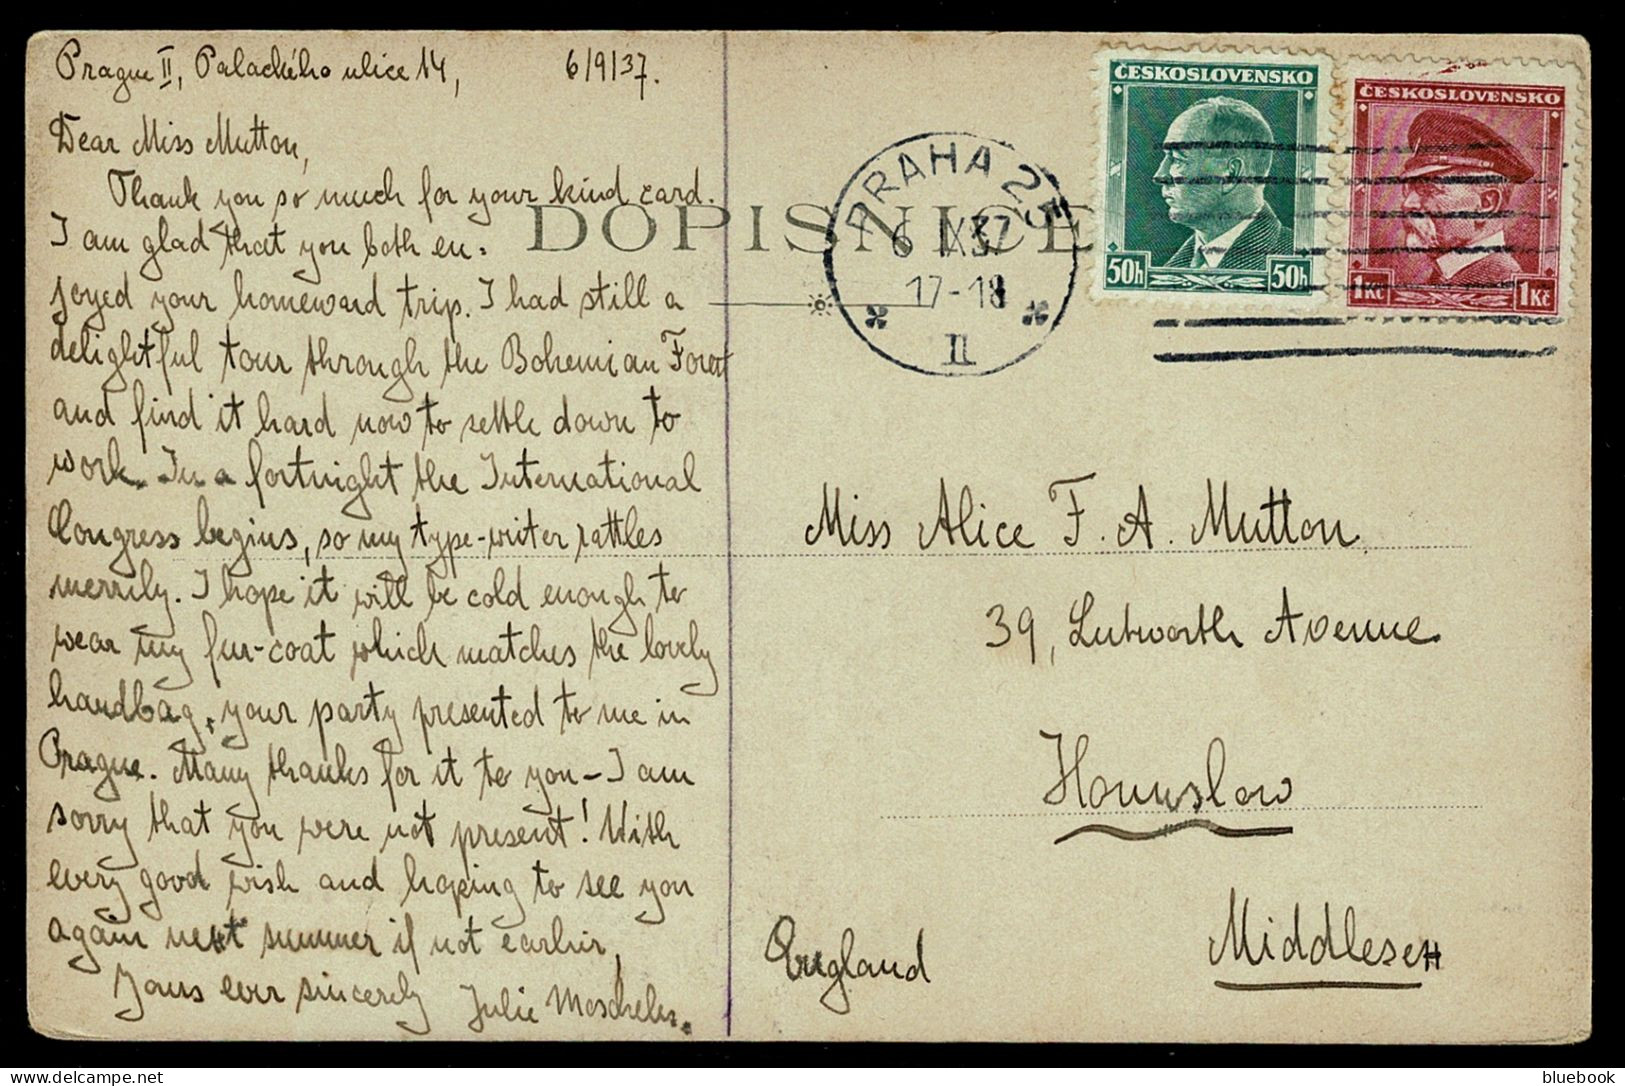 Prague II, Palackého ulice 14, 6/9/37.
Dear Miss Mutton,
Thank you so much for your kind card.
I am glad that you both en-
joyed your homeward trip. I had still a
delightful tour through the Bohemian Forest
and find it hard now to settle down to
work. In a fortnight the International
Congress begins, so my type-writer rattles
merrily. I hope it will be cold enough to
wear my fur-coat which matches the lovely
handbag, your party presented to me in
Prague. Many thanks for it to you – I am
sorry that you were not present! With
every good wish and hoping to see you
again next summer if not earlier,
Yours ever sincerely Julie Moscheles.
DOPISNICE
PRAHA 25
6 IX 37
17-18
II
ČESKOSLOVENSKO
50h 50h
ČESKOSLOVENSKO
1Kč 1Kč
Miss Alice F. A. Mutton
39, Lutworth Avenue
Hounslow
Middlesex
England
bluebook